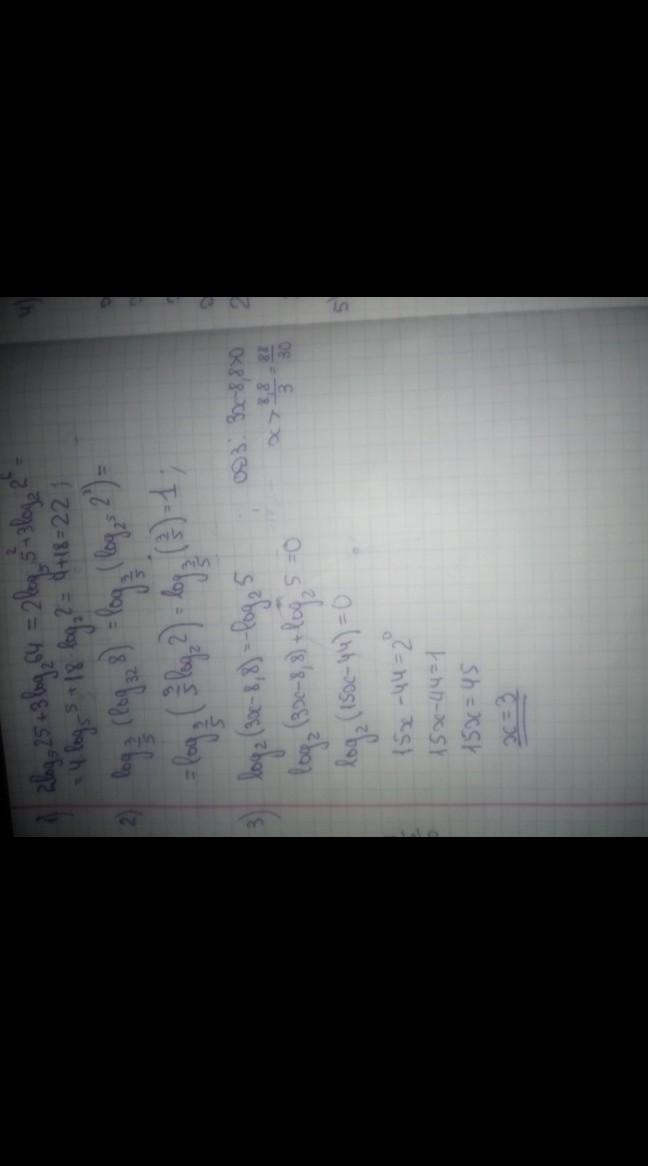 1) 2log₅25+3log₂64 = 2log₅5²+3log₂2⁶=
=4·log₅5+18·log₂2= 4+18=22;
2) log_{3/5}(log₃₂8) =log_{3/5}(log_{2⁵}2³)=
=log_{3/5}(3/5 log₂2)= log_{3/5}(3/5)=1;
3) log₂(3x-8,8)=-log₂5
ОДЗ: 3x-8,8>0
x > 8,8/3 = 88/30
log₂(3x-8,8)+log₂5=0
log₂(15x-44)=0
15x-44=2⁰
15x-44=1
15x=45
x=3
4)
5)